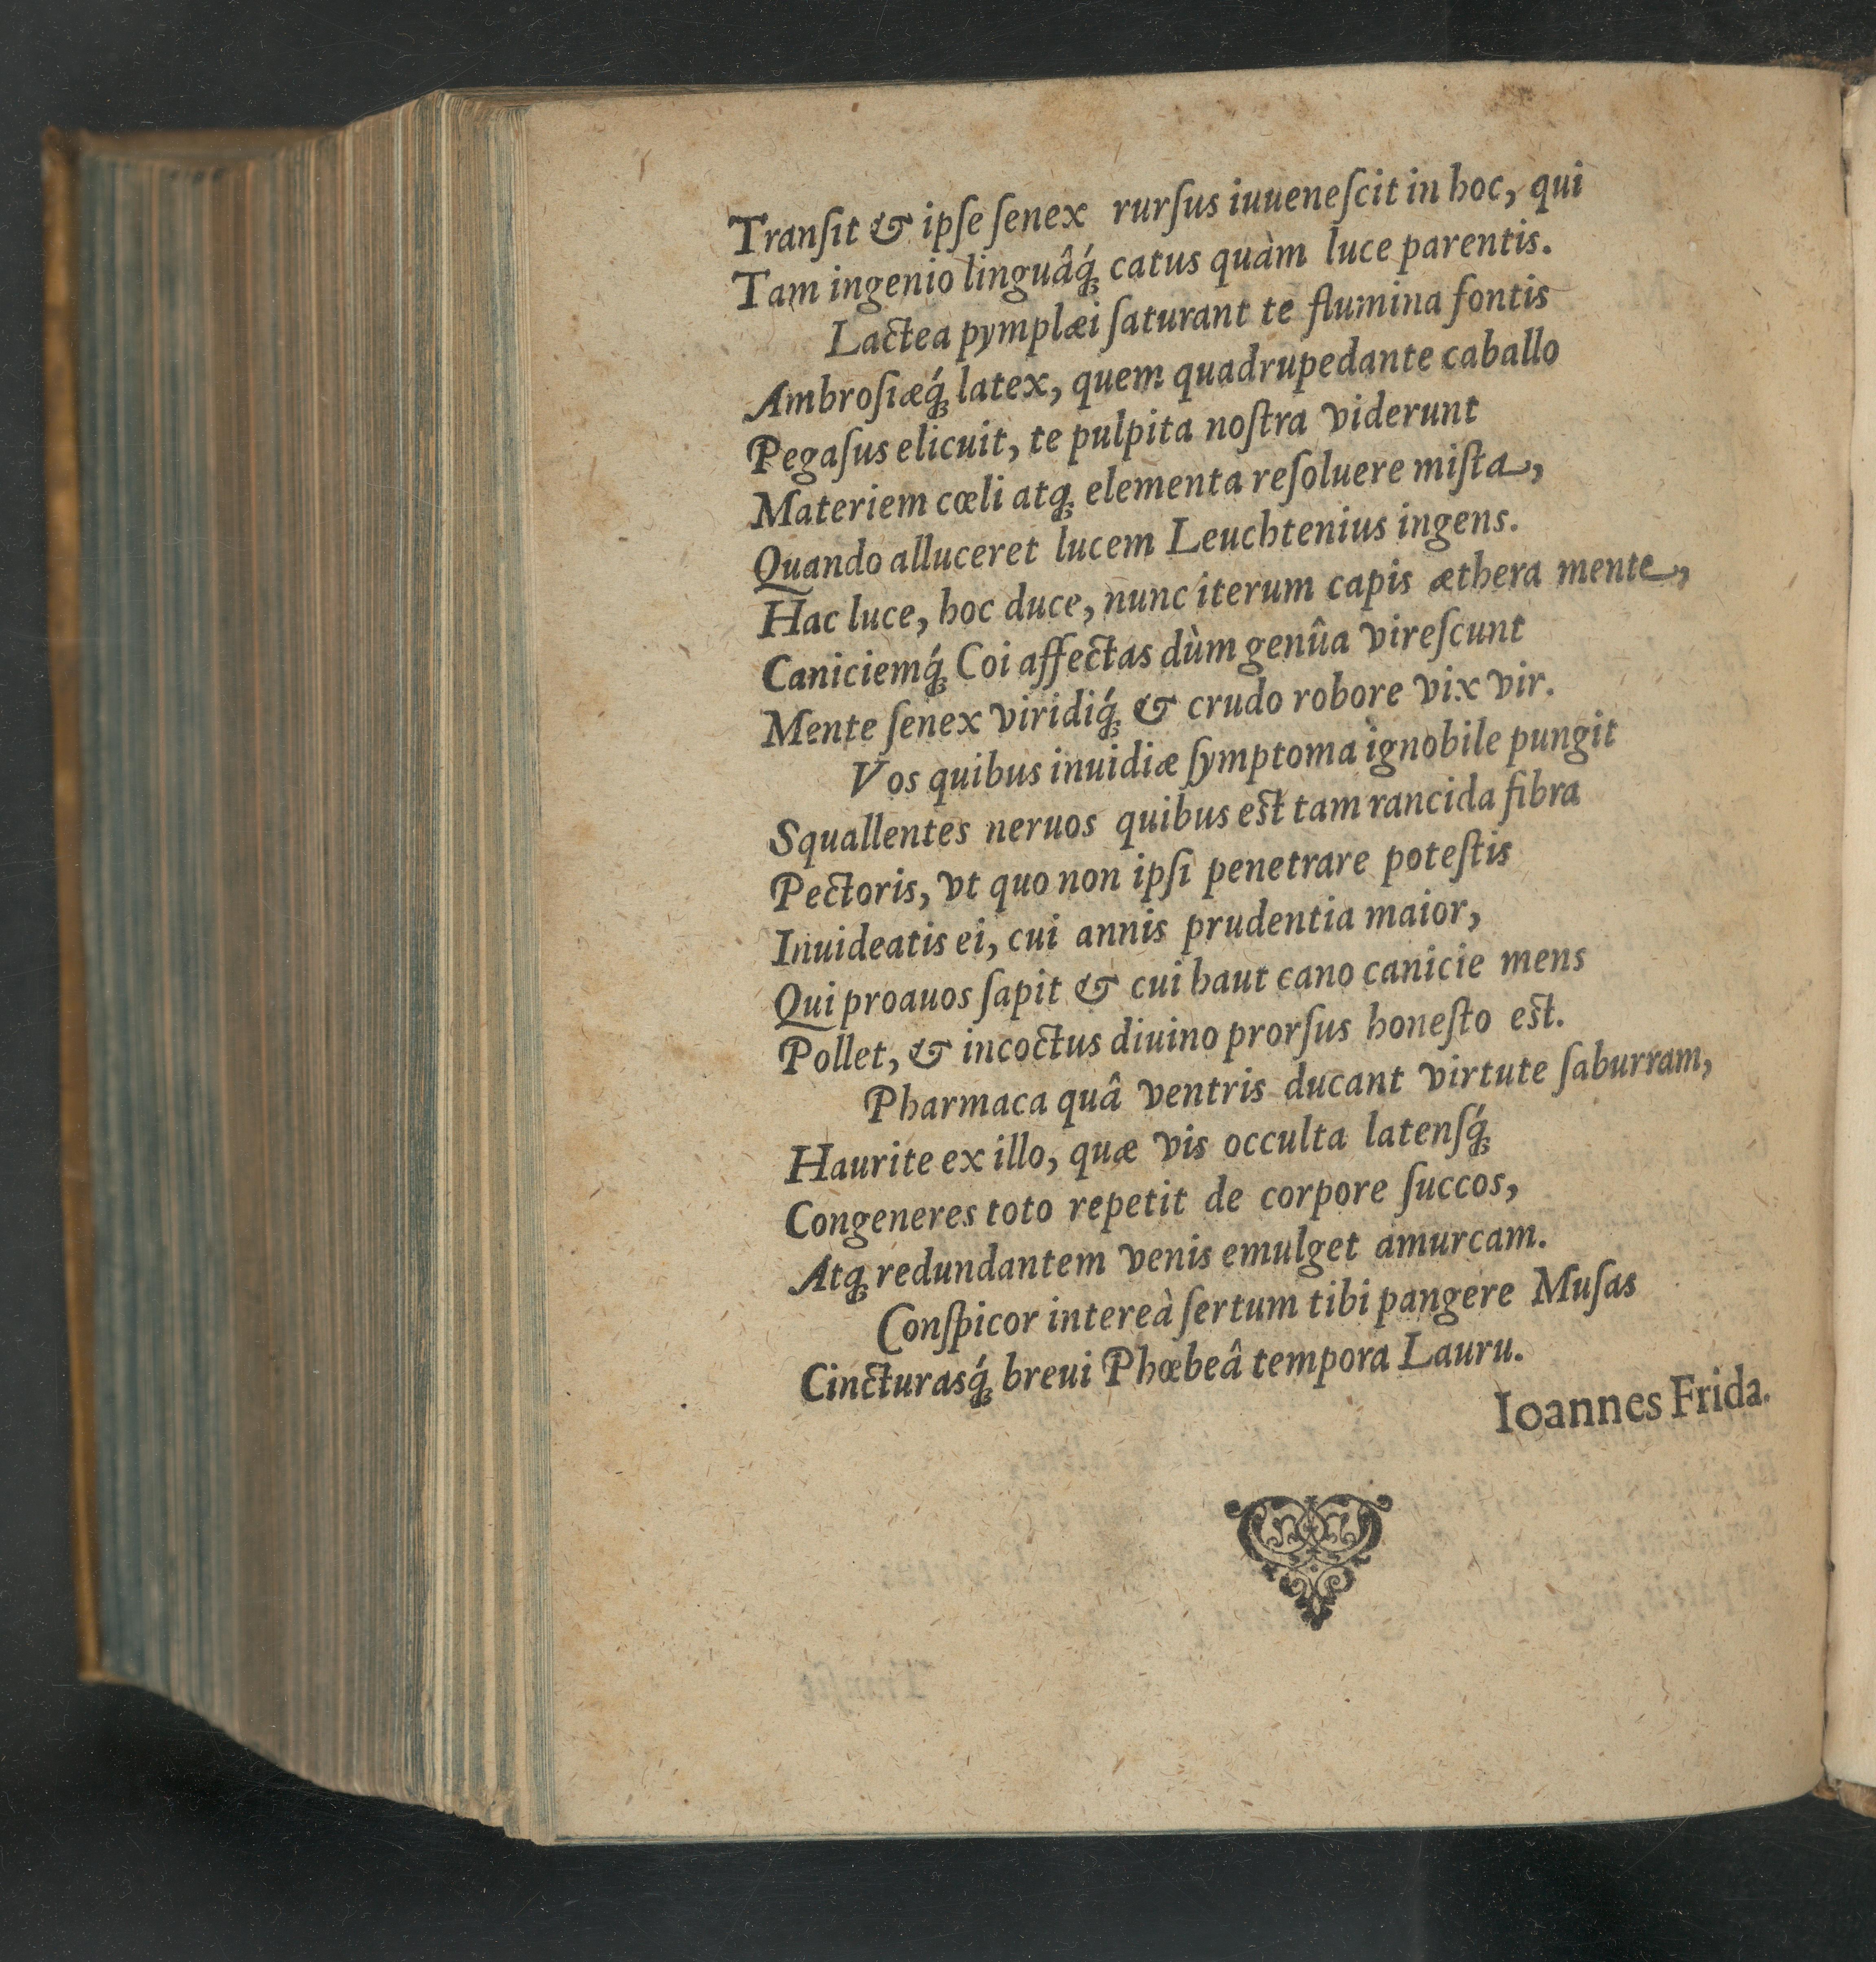 Tranſit & ipſe ſenex rurſus iuueneſcit in hoc, qui
Tam ingenio linguâq́; catus quàm luce parentis.
Lactea pymplæi ſaturant te flumina fontis
Ambroſiæq́; latex, quem quadrupedante caballo
Pegaſus elicuit, te pulpita noſtra viderunt
Materiem cœli atq; elementa reſoluere miſta,
Quando alluceret lucem Leuchtenius ingens.
Hac luce, hoc duce, nunc iterum capis æthera mente,
Caniciemq́; Coi affectas dùm genûa vireſcunt
Mente ſenex viridiq́; & crudo robore vix vir.
Vos quibus inuidiæ ſymptoma ignobile pungit
Squallentes neruos quibus eſt tam rancida fibra
Pectoris, vt quo non ipſi penetrare poteſtis
Inuideatis ei, cui annis prudentia maior,
Qui proauos ſapit & cui haut cano canicie mens
Pollet, & incoctus diuino prorſus honeſto eſt.
Pharmaca quâ ventris ducant virtute ſaburram,
Haurite ex illo, quæ vis occulta latenſq́;
Congeneres toto repetit de corpore ſuccos,
Atq; redundantem venis emulget amurcam.
Conſpicor intereà ſertum tibi pangere Muſas
Cincturasq́; breui Phœbeâ tempora Lauru.
Ioannes Frida.